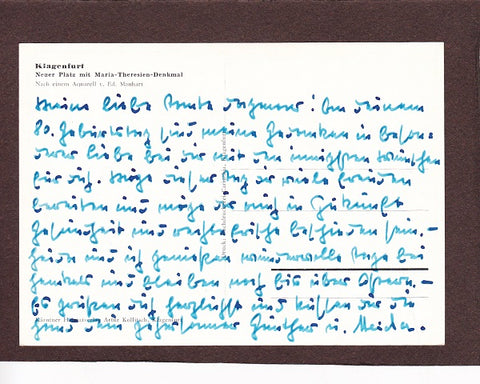 Klagenfurt
Neuer Platz mit Maria-Theresien-Denkmal
Nach einem Aquarell v. Ed. Manhart
Meine liebe Tante ! An Deinem
80. Geburtstag sind meine Gedanken in beson-
derer Liebe bei Dir mit den innigsten Wünschen
für Dich. Möge dieser Tag Dir viele Freuden
bereiten und möge Dir auch in Zukunft
Gesundheit und rechte Frische beschieden sein. –
und ich genießen wundervolle Tage bei
und bleiben noch bis über Ostern. –
Es grüßen Dich herzlichst und küssen Dir die
Hand Dein gehorsamer Günther u.
Kärntner Artur Kollitsch, Klagenfurt